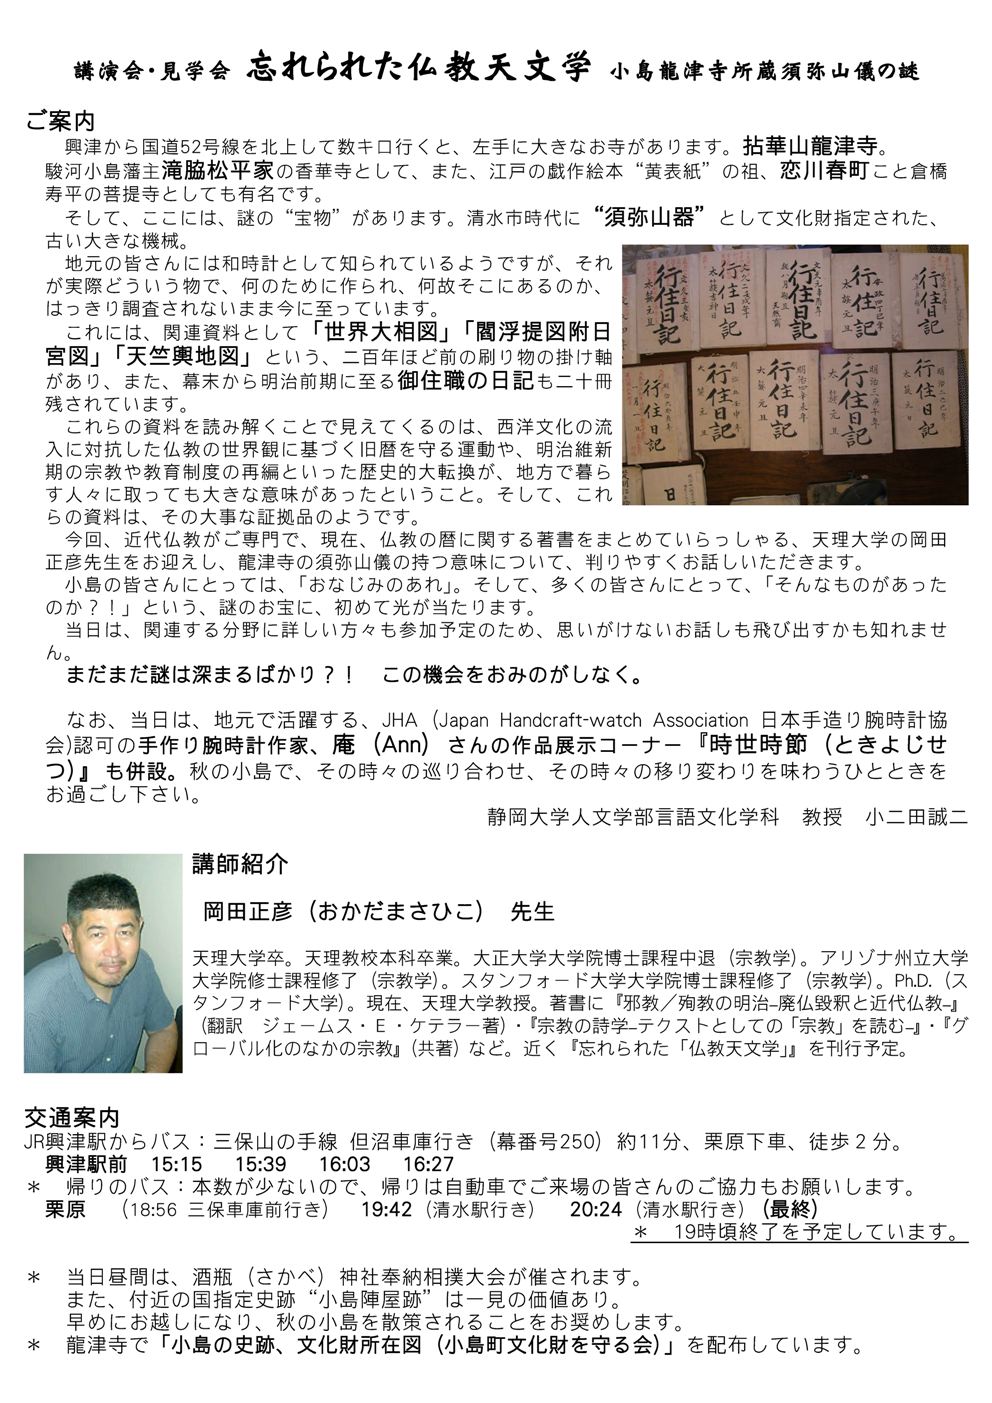 講演会・見学会 忘れられた仏教天文学 小島龍津寺所蔵須弥山儀の謎
ご案内
興津から国道52号線を北上して数キロ行くと、左手に大きなお寺があります。拈華山龍津寺。
駿河小島藩主滝脇松平家の香華寺として、また、江戸の戯作絵本“黄表紙”の祖、恋川春町こと倉橋
寿平の菩提寺としても有名です。
そして、ここには、謎の“宝物”があります。清水市時代に“須弥山器”として文化財指定された、
古い大きな機械。
地元の皆さんには和時計として知られているようですが、それ
が実際どういう物で、何のために作られ、何故そこにあるのか、
はっきり調査されないまま今に至っています。
これには、関連資料として「世界大相図」「閻浮提図附日
宮図」「天竺輿地図」という、二百年ほど前の刷り物の掛け軸
があり、また、幕末から明治前期に至る御住職の日記も二十冊
残されています。
これらの資料を読み解くことで見えてくるのは、西洋文化の流
入に対抗した仏教の世界観に基づく旧暦を守る運動や、明治維新
期の宗教や教育制度の再編といった歴史的大転換が、地方で暮ら
す人々に取っても大きな意味があったということ。そして、これ
らの資料は、その大事な証拠品のようです。
行住日記
行住日記
行住日記
行住日記
行住日記
行住日記
行住日記
行住日記
行住日記
行住日記
今回、近代仏教がご専門で、現在、仏教の暦に関する著書をまとめていらっしゃる、天理大学の岡田
正彦先生をお迎えし、龍津寺の須弥山儀の持つ意味について、判りやすくお話しいただきます。
小島の皆さんにとっては、「おなじみのあれ」。そして、多くの皆さんにとって、「そんなものがあった
のか？！」という、謎のお宝に、初めて光が当たります。
当日は、関連する分野に詳しい方々も参加予定のため、思いがけないお話しも飛び出すかも知れませ
ん。
まだまだ謎は深まるばかり？！　この機会をおみのがしなく。
なお、当日は、地元で活躍する、JHA（Japan Handcraft-watch Association 日本手造り腕時計協
会)認可の手作り腕時計作家、庵（Ann）さんの作品展示コーナー『時世時節（ときよじせ
つ)』も併設。秋の小島で、その時々の巡り合わせ、その時々の移り変わりを味わうひとときを
お過ごし下さい。
静岡大学人文学部言語文化学科　教授　小二田誠二
講師紹介
岡田正彦（おかだまさひこ）　先生
天理大学卒。天理教校本科卒業。大正大学大学院博士課程中退（宗教学）。アリゾナ州立大学
大学院修士課程修了（宗教学）。スタンフォード大学大学院博士課程修了（宗教学）。Ph.D.（ス
タンフォード大学）。現在、天理大学教授。著書に『邪教／殉教の明治–廃仏毀釈と近代仏教–』
（翻訳　ジェームス・E・ケテラー著）・『宗教の詩学–テクストとしての「宗教」を読む–』・『グ
ローバル化のなかの宗教』（共著）など。近く『忘れられた「仏教天文学」』を刊行予定。
交通案内
JR興津駅からバス：三保山の手線 但沼車庫行き（幕番号250）約11分、栗原下車、徒歩２分。
興津駅前　15:15　15:39　16:03　16:27
＊　帰りのバス：本数が少ないので、帰りは自動車でご来場の皆さんのご協力もお願いします。
栗原　（18:56 三保車庫前行き）　19:42（清水駅行き）　20:24（清水駅行き）（最終）
＊　19時頃終了を予定しています。
＊　当日昼間は、酒瓶（さかべ）神社奉納相撲大会が催されます。
また、付近の国指定史跡“小島陣屋跡”は一見の価値あり。
早めにお越しになり、秋の小島を散策されることをお奨めします。
＊　龍津寺で「小島の史跡、文化財所在図（小島町文化財を守る会）」を配布しています。